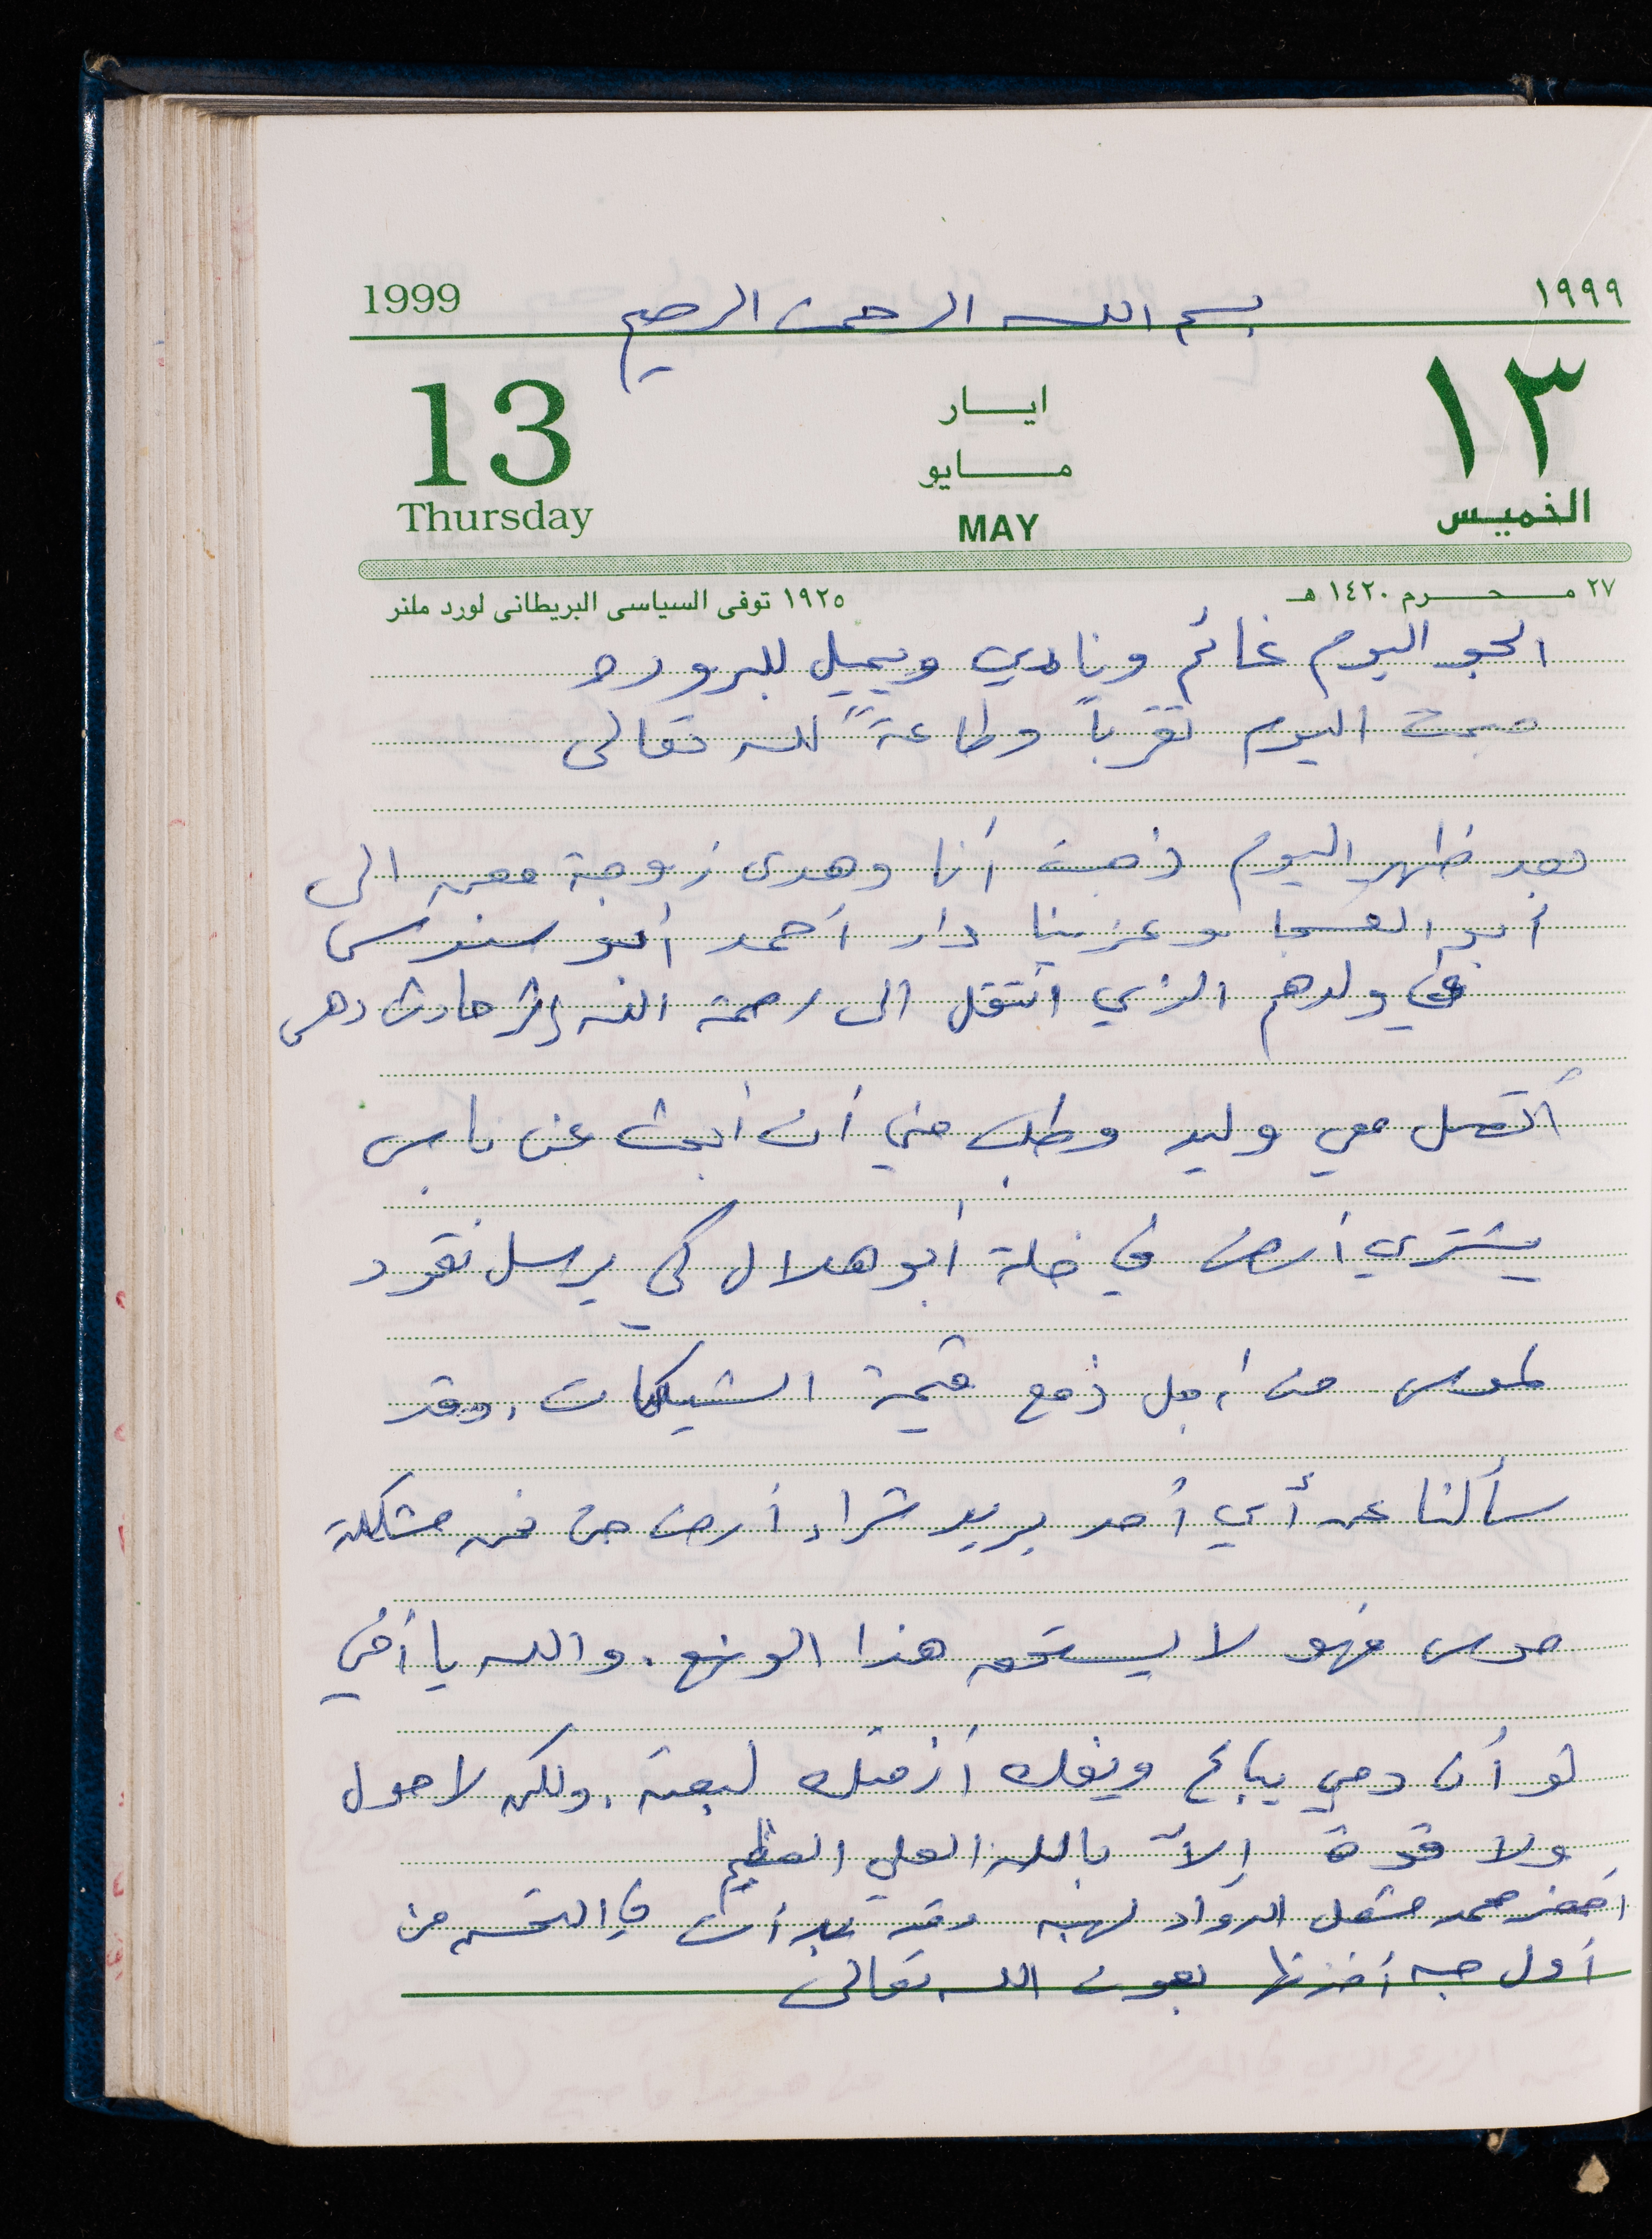 بسم الله الرحمن الرحيم
1999
١٩٩٩
13
Thursday
ايار
مايو
MAY
١٣
الخميس
٢٧ محرم ١٤٢٠ هـ
١٩٢٥ توفى السياسى البريطانى لورد ملنر
الجو اليوم غائم ونادي ويميل للبروده
صمت اليوم تقرباً وطاعةً لله تعالى
بعد ظهر اليوم ذهبت أنا وهدى زوجة معن الى
أبو العسجا وعزينا دار أحمد أبو سندس
في ولدهم الذي انتقل الى رحمة الله إثر حادث دهس
أتصل معي وليد وطلب مني أن أبحث عن ناس
يشتري أرض في خلة أبو هلال كي يرسل نقود
لموسى من أجل دفع قيمة الشيكات. وقد
سألنا عن أي أحد يريد شراء أرض من مشكلة
موسى فهو لا يستحق هذا الوضع. والله يا أخي
لو أن دمي يباع ويفك أزمتك لبعته. ولكن لا حول
ولا قوة إلاّ بالله العلي العظيم
أحضر محمد مشعل الدواء لهبه وقد بدأت في التحسن من
أول حبه أخذتها بعون الله تعالى